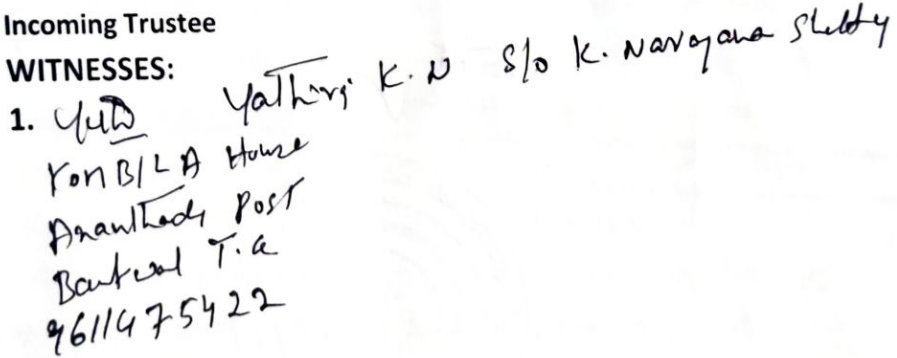 Incoming Trustee
WITNESSES:
1. Yathiraj K.N S/o K. Narayana Shetty
KonBILA House
Ananthady Post
Bantwal T.a
9611475422